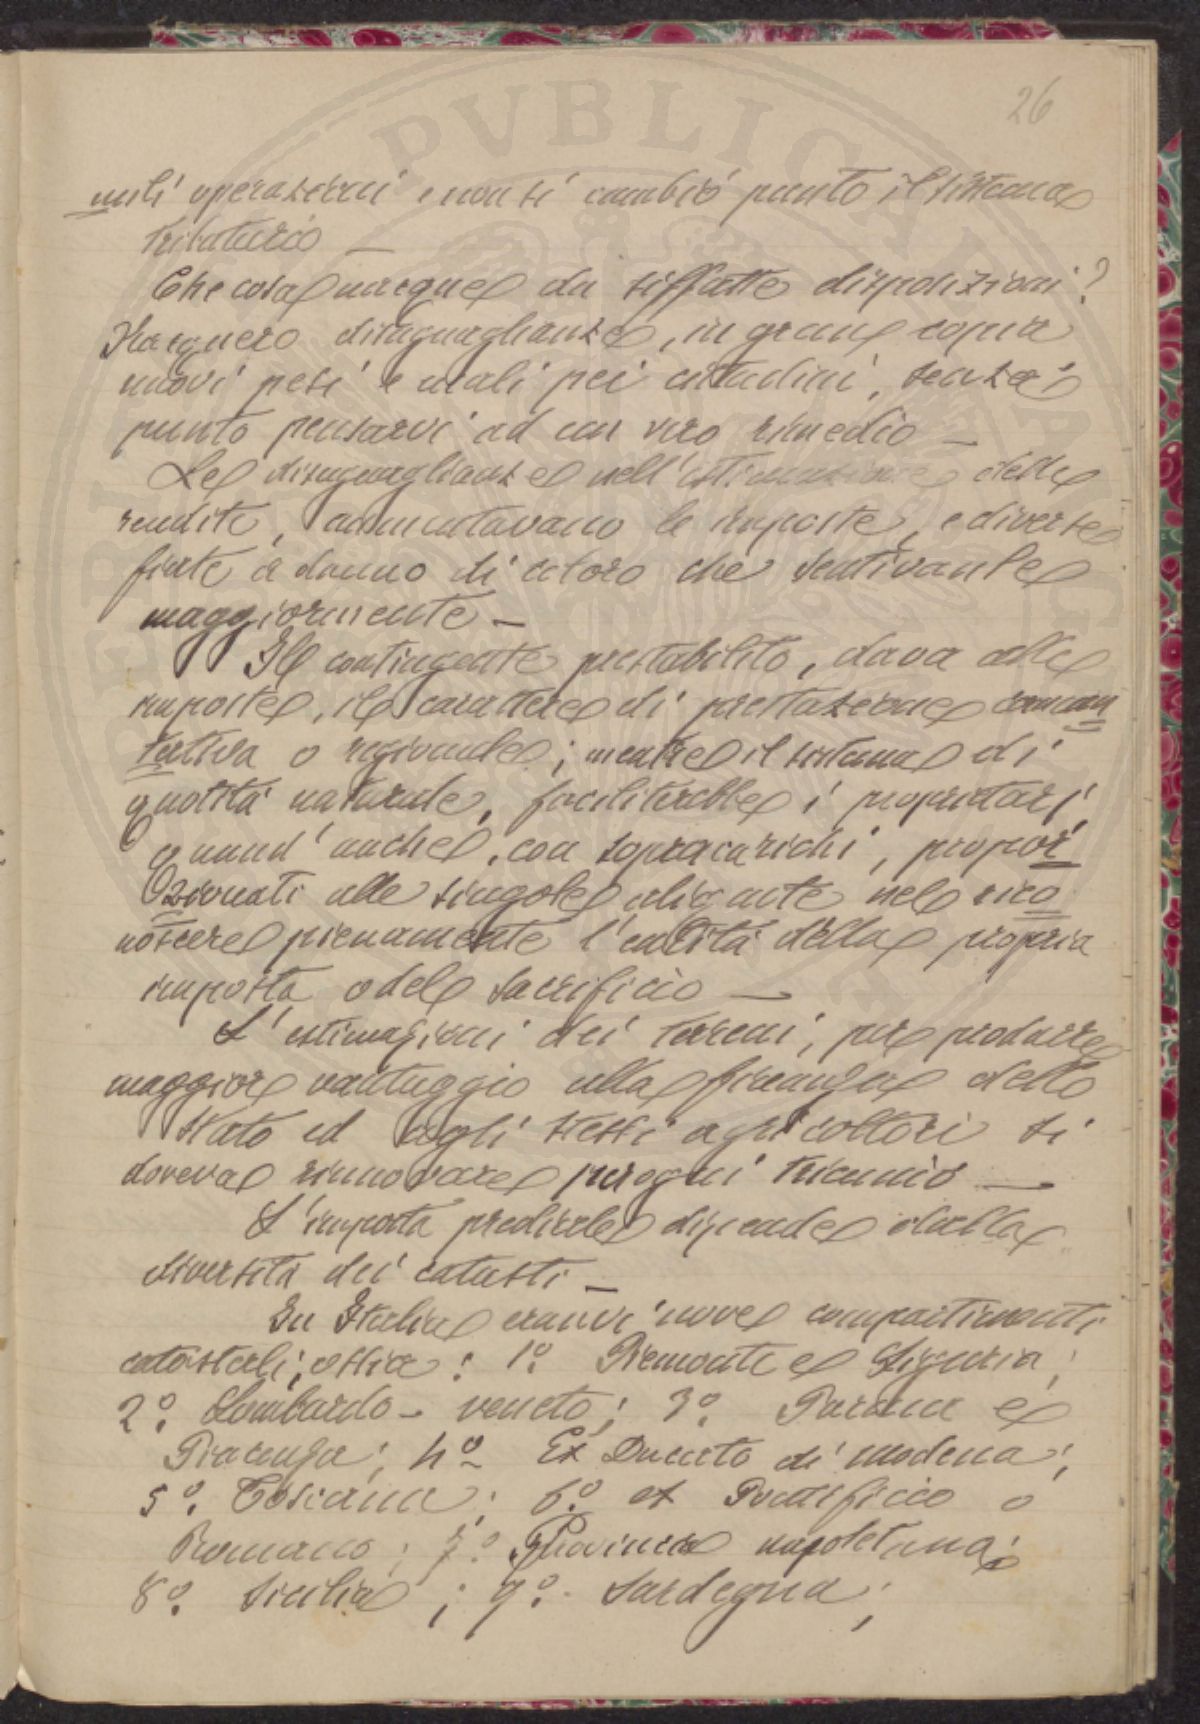 26
mili operazioni e non si cambiò punto il sistema
tributario —
Che cosa nacque da siffatte disposizioni?
Nacquero disuguaglianze, in gran copia
nuovi pesi e mali pei cittadini, senza
punto pensarvi ad un vero rimedio —
Le disuguaglianze nell'estimazione delle
rendite, aumentavano le imposte, e diverse
fiate a danno di coloro che sentivanle
maggiormente —
Il contingente prestabilito, dava alle
imposte, il carattere di prestazione
o regionale; mentre il sistema di
quotità naturale, faciliterebbe i proprietarj,
quand'anche, con sopracarichi, propor
zionati alle singole aliquote nel rico
noscere pienamente l'entità della propria
imposta o del sacrificio —
L'estimazioni dei terreni, per produrre
maggior vantaggio alla finanza dello
Stato ed agli stessi agricoltori si
doveva rinnovare per ogni triennio —
L'imposta prediale dipende dalla
diversità dei catasti —
In Italia eranvi nove compartimenti
catastali, ossia: 1º Piemonte e Liguria;
2º. Lombardo - veneto; 3º. Parma e
Piacenza; 4º Ex Ducato di Modena;
5º. Toscana; 6º. ex Pontificio o
Romano; 7º. Provincia napoletana;
8º. Sicilia; 9º. Sardegna;
PVBLICA